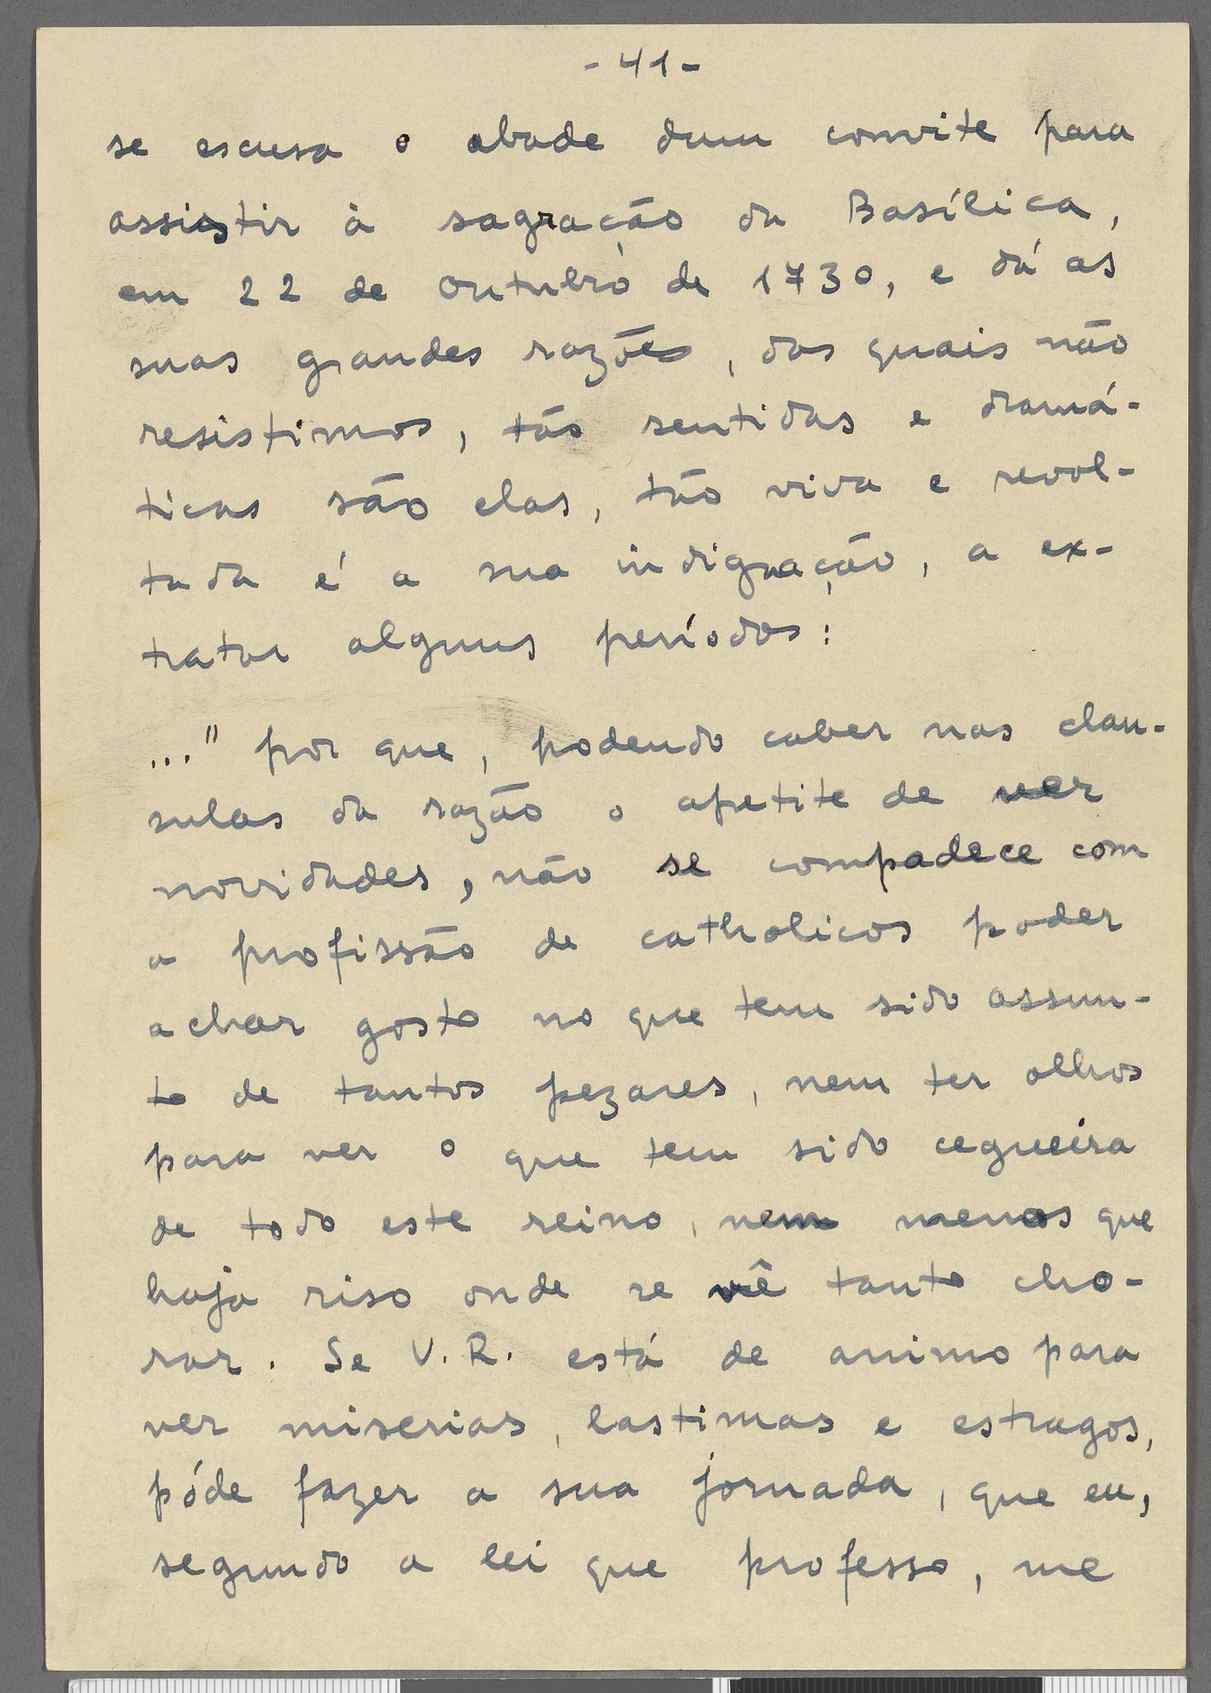 - 41 -
se escusa o abade dum convite para
assistir à sagração da Basílica,
em 22 de Outubro de 1730, e dá as
suas grandes razões, das quais não
resistimos, tão sentidas e dramá-
ticas são elas, tão viva e revol-
tada é a sua indignação, a ex-
tratar alguns períodos:
..." por que, podendo caber nas clau-
sulas da razão o apetite de ver
novidades, não se compadece com
a profissão de catholicos poder
achar gosto no que tem sido assun-
to de tantos pezares, nem ter olhos
para ver o que tem sido cegueira
de todo este reino, nem menos que
haja riso onde se vê tanto cho-
rar. Se V. R. está de animo para
ver miserias, lastimas e estragos,
póde fazer a sua jornada, que eu,
segundo a lei que professo, me